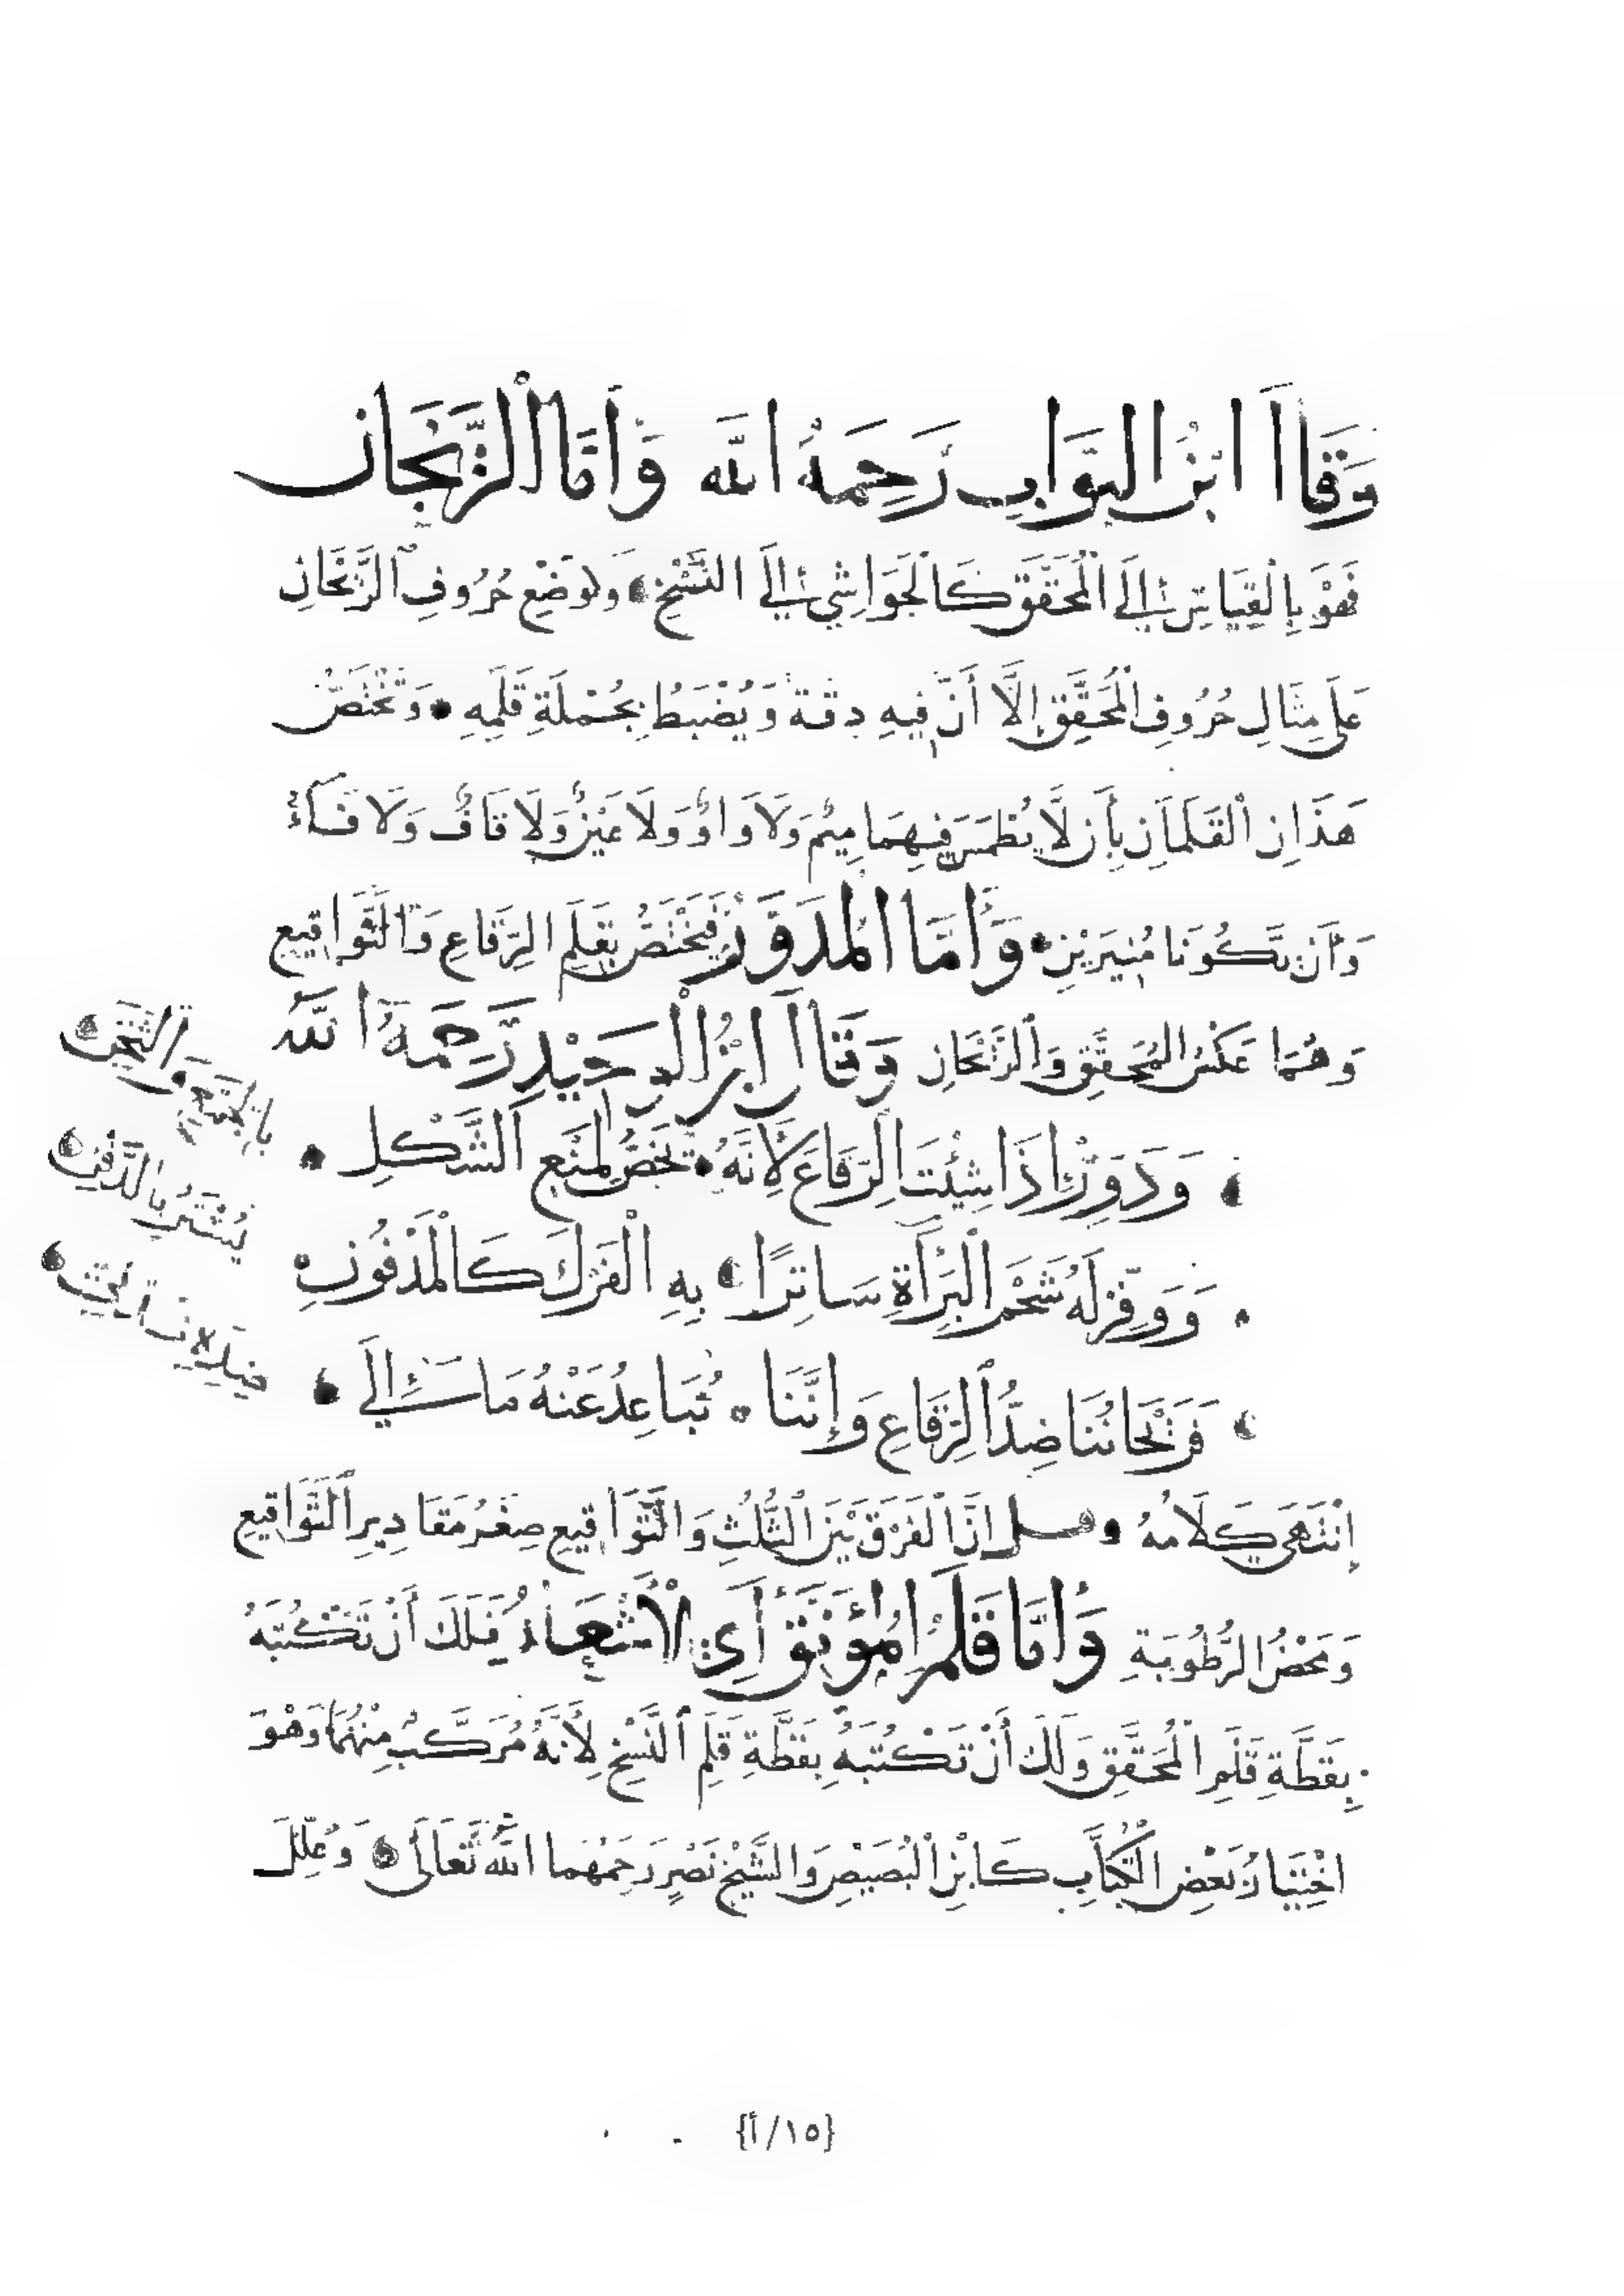 وَقَالَ ابْنُ البَوَّابِ رَحِمَهُ اللَّه وَأَمَّا الرَّيْحَانِ
فَهْوَ بِالْقِيَاسِ إِلَى الْمُحَقَّقِ كَالْحَوَاشِي إِلَى النَّسْخِ وَلِوَضْعِ حُرُوفِ الرَّيْحَانِ
عَلَى مِثَالِ حُرُوفِ الْمُحَقَّقِ إِلَّا أَنَّ فِيهِ دِقَّةً وَيُضْبَطُ بِجُمْلَةِ قَلَمِهِ وَيَخْتَصُّ
هَذَانِ الْقَلَمَانِ بِأَن لَّا يُطْمَسَ فِيهِمَا مِيْمٌ وَلَا وَاوٌ وَلَا عَيْنٌ وَلَا قَافٌ وَلَا فَاءٌ
وَأَن تَكُونَا مُنِيرَيْنِ وَأَمَّا الْمُدَوَّرُ فَيَخْتَصُّ بِقَلَمِ الرِّقَاعِ وَالتَّوَاقِيعِ
وَهُمَا عَكْسُ الْمُحَقَّقِ وَالرَّيْحَانِ وَقَالَ ابْنُ الْوَحِيْدِ رَحِمَهُ اللَّهُ
وَدَوِّرْ إِذَا شِئْتَ الرِّقَاعَ لِأَنَّهُ يُخَصُّ لِمَنْعِ الشَّكْلِ
بِالْجَمْعِ وَالتَّخْتِ
وَوَفِّرْ لَهُ شَحْمَ الْبَرَاةِ سَاتِرًا بِهِ الْفَرْكَ كَالْمَدْفُونِ
يُسْتَرُ بِالدَّفْنِ
فَرَيْحَانُنَا ضِدُّ الرِّقَاعِ وَإِنَّنَا نُبَاعِدُ عَنْهُ مَا إِلَى
إِنْتَهَى كَلَامُهُ وقيل إِنَّ الْفَرْقَ بَيْنَ الثُّلُثِ وَالتَّوَاقِيعِ صِغَرُ مَقَادِيرِ التَّوَاقِيعِ
وَمَحْضُ الرُّطُوبَةِ وَأَمَّا قَلَمُ الْمُؤَنَّقِ أَيْ الْأَشْعَارُ فَلَكَ أَنْ تَكْتُبَهُ
بِقَطَّةِ قَلَمِ الْمُحَقَّقِ وَلَكَ أَنْ تَكْتُبَهُ بِقَطَّةِ قَلَمِ النَّسْخِ لِأَنَّهُ مُرَكَّبٌ مِنْهُمَا وَهْوَ
اخْتِيَارُ بَعْضِ الْكُتَّابِ كَابْنِ الْبُصَيْصِ وَالشَّيْخِ نَصْرٍ رَحِمَهُمَا اللَّهُ تَعَالَى وَعُلِّلَ
{١٥/أ}